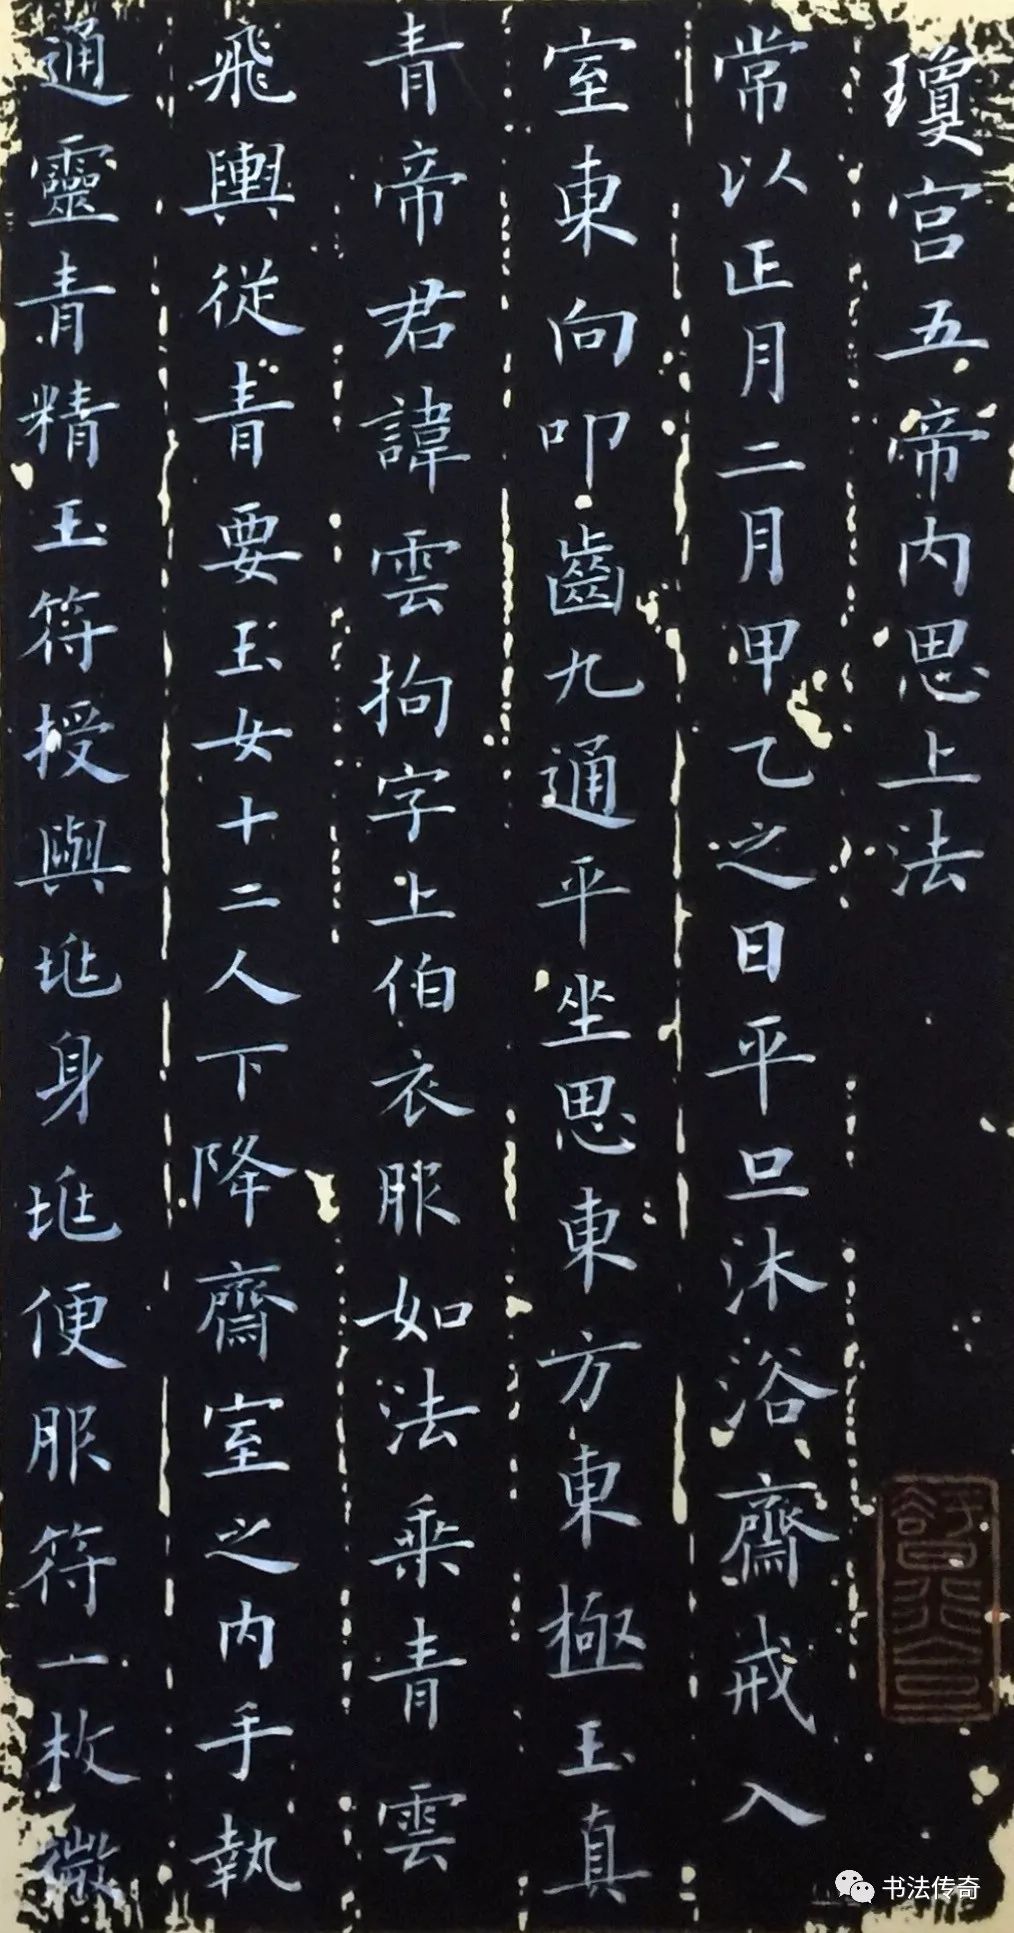 瓊宫五帝内思上法
常以正月二月甲乙之日平旦沐浴齋戒入
室東向叩齒九通平坐思東方東極玉真
青帝君諱雲拘字上伯衣服如法乗青雲
飛輿從青要玉女十二人下降齋室之内手執
通靈青精玉符授與兆身兆便服符一枚微
书法传奇